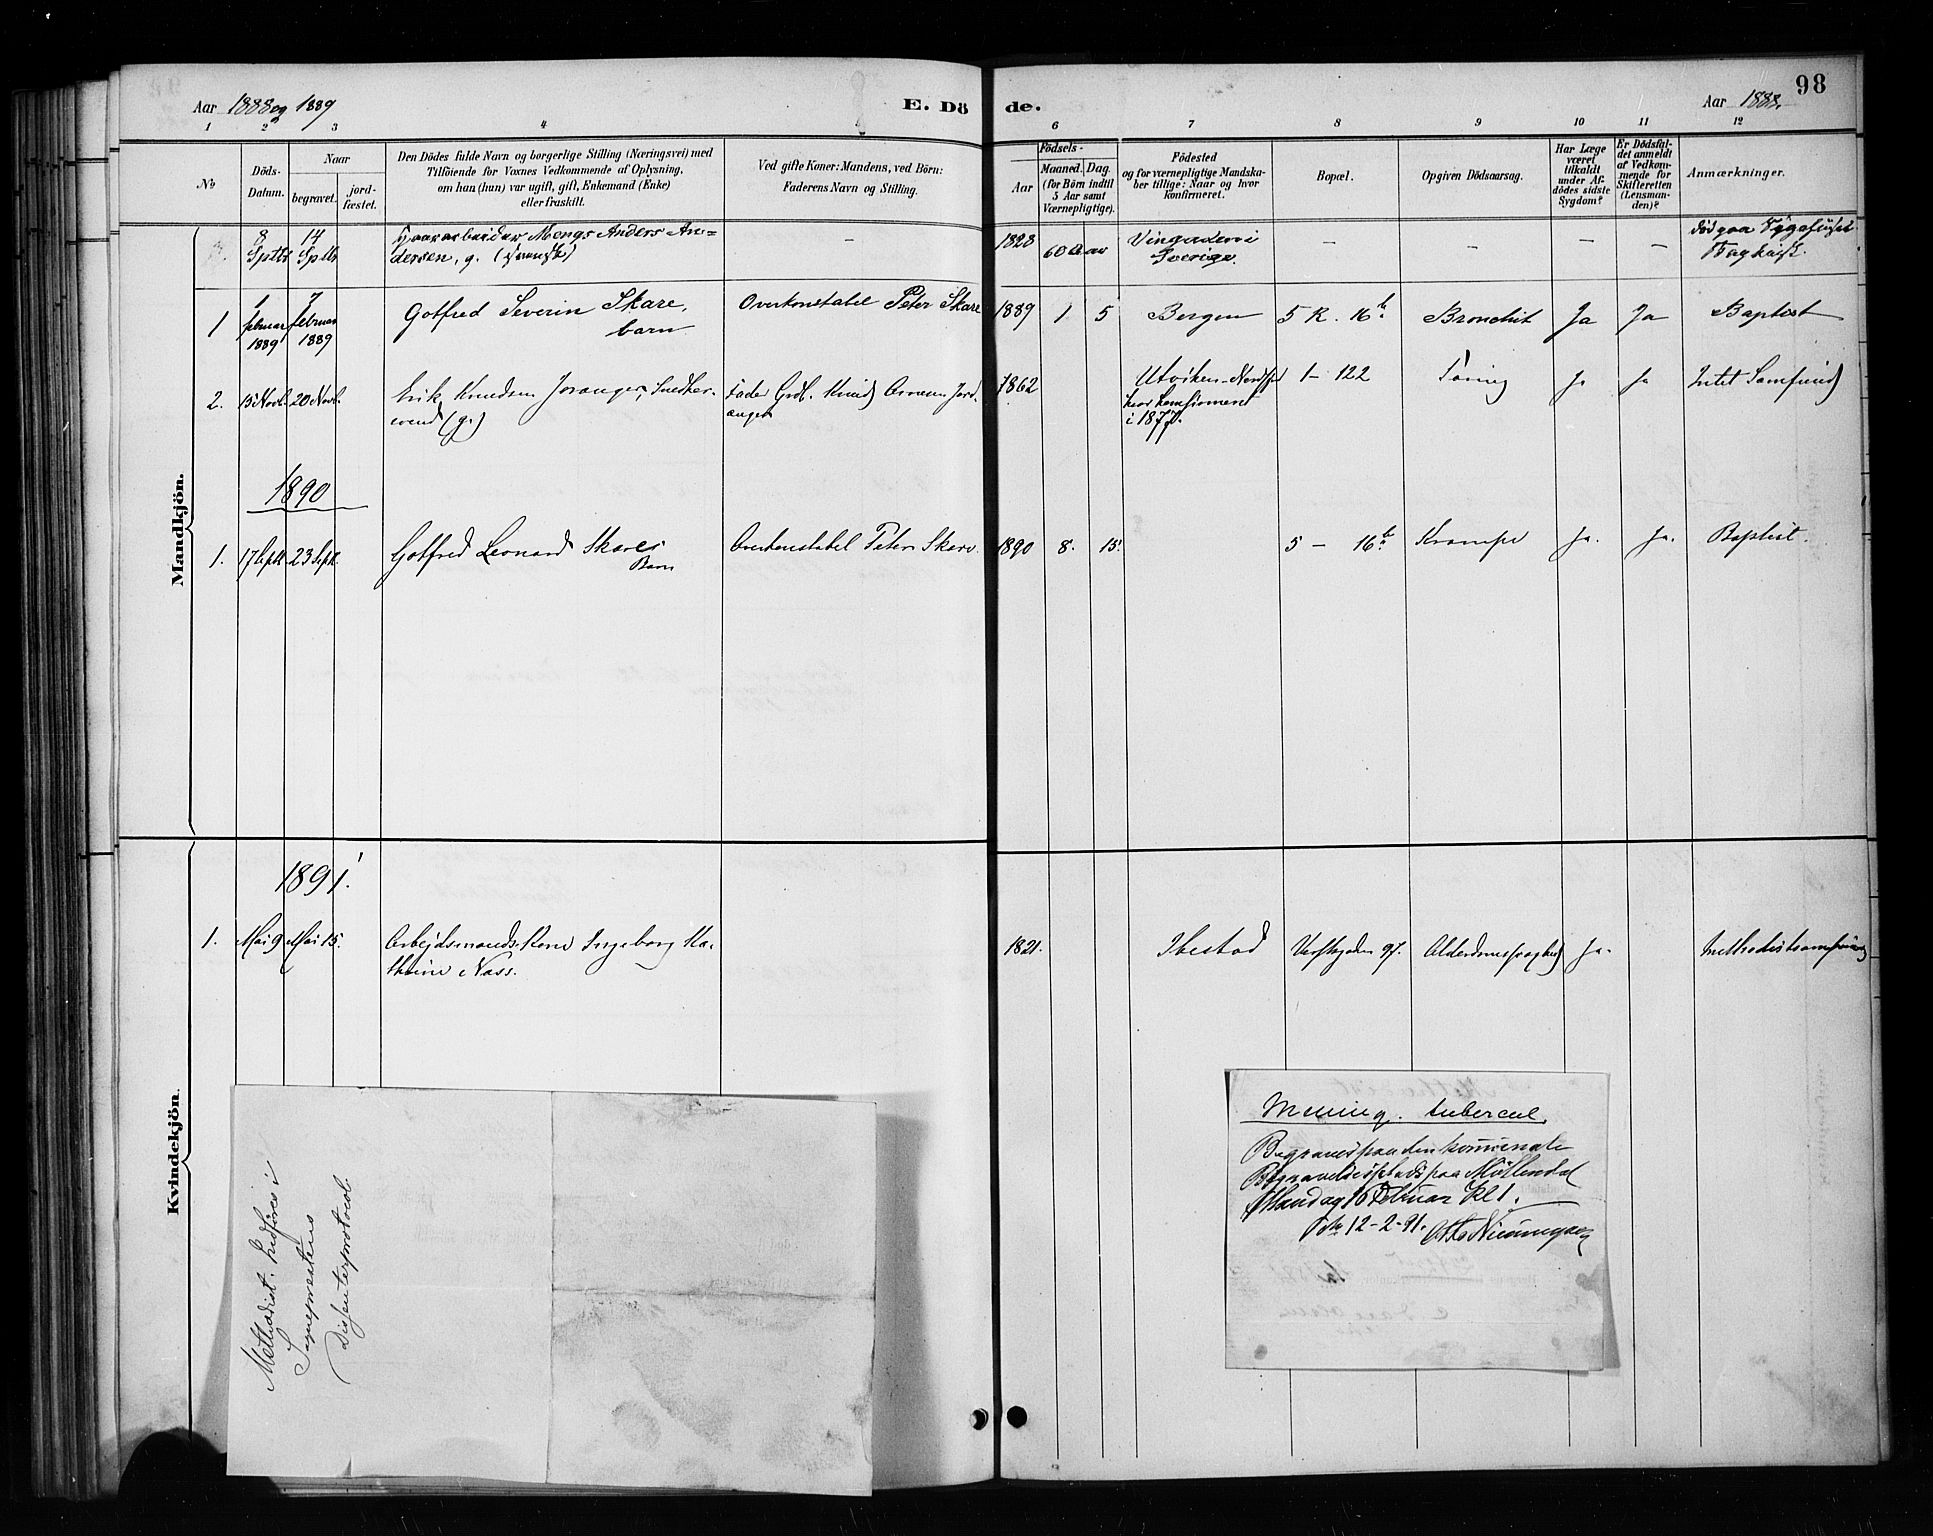 Aar 1888 og 1889
E. Dö
de.
Aar 1888.
98
1 2 3 4 5 6 7 8 9 10 11 12
No
Döds-
Datum.
Naar
begravet.
jord-
fæstet.
Den Dödes fulde Navn og borgerlige Stilling (Næringsvei) med
Tilföiende for Voxnes Vedkommende af Oplysning,
om han (hun) var ugift, gift, Enkemand (Enke)
eller fraskilt.
Ved gifte Koner: Mandens, ved Börn:
Faderens Navn og Stilling.
Födsels-
Aar
Maaned.
Dag
(for Börn indtil
5 Aar samt
Værnepligtige).
Födested
og for værnepligtige Mandska-
ber tillige: Naar og hvor
konfirmeret.
Bopæl.
Opgiven Dödsaarsag.
Har Læge
været
tilkaldt
under Af-
dödes sidste
Sygdom?
Er Dödsfal-
det anmeldt
af Vedkom-
mende for
Skifteretten
(Lensman-
den)?
Anmærkninger.
Mandkjön.
8 Sptbr 14 Sptbr
arbeider Mongs Anders An=
dersen, g. (svensk)
–
1828 60 Aar
Sverige.
– – – –
1 1 februar 1889 7 februar 1889 Gotfred Severin Skare, barn Overkonstabel Peter Skare 1889 1 5 Bergen 5 R. 16 b. Bronchit Ja Ja Baptist
2. 15 Novb. 20 Novb. Erik Knudsen Joranger, Snedker-
svend (g.)
Fader Grdb. Knud
anger
1862 Utviken Nordfjord
hvor konfirmeret
i 1877.
1 – 122 Tæring Ja Ja Intet Samfund
1890
1. 17 Sept. 23 Sept. Gotfred Leonard Skares Barn Overkonstabel Peter Skare. 1890 8. 15. 5 – 16 b. Krampe Ja. Ja. Baptist.
Kvindekjön.
1891.
1. Mai 9 Mai 15. Arbejdsmands Kone Ingeborg Ka-
thrine Nass.
1821. Ibestad 97. Alderdomssvaghed Ja. Methodistsamfund
Methodist. Indføres i
Sognepræstens
Dissenterprotocol.
Mening. tubercul.
Begraves paa den kommunale
Begravelsesplads paa Møllendal
Mandag 16 Februar Kl 1.
12-2-91.